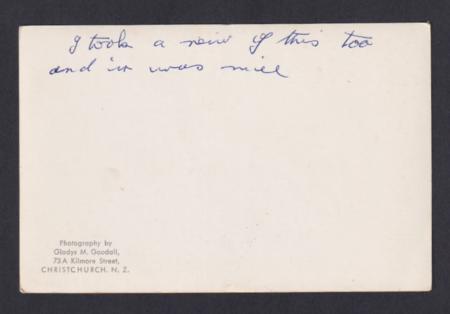 I took a view of this too
and it was nice
Photography by
Gladys M. Goodall,
73A Kilmore Street,
CHRISTCHURCH. N. Z.